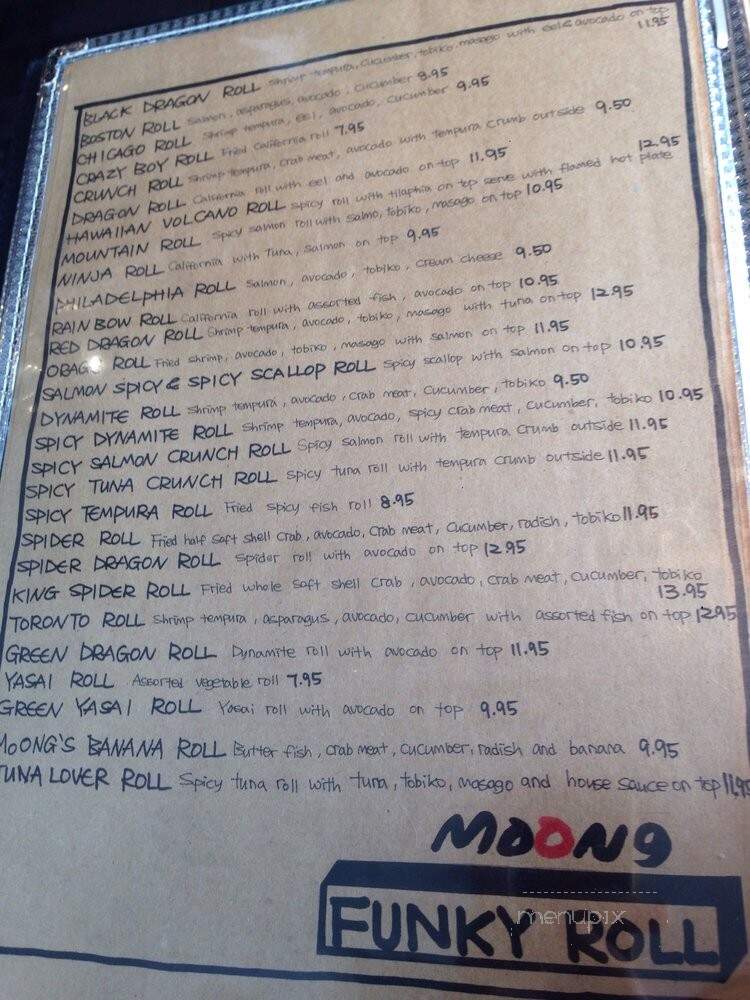 BLACK DRAGON ROLL Shrimp tempura, cucumber, tobiko, masago with eel & avocado on top
11.95
BOSTON ROLL Salmon, asparagus, avocado, cucumber 8.95
CHICAGO ROLL Shrimp tempura, eel, avocado, cucumber 9.95
CRAZY BOY ROLL Fried California roll 7.95
CRUNCH ROLL Shrimp tempura, crab meat, avocado with tempura crumb outside 9.50
DRAGON ROLL California roll with eel and avocado on top 11.95
HAWAIIAN VOLCANO ROLL Spicy roll with tilaphia on top serve with flamed hot plate 12.95
MOUNTAIN ROLL Spicy salmon roll with salmo, tobiko, masago on top 10.95
NINJA ROLL California with Tuna, Salmon on top 9.95
PHILADELPHIA ROLL Salmon, avocado, tobiko, cream cheese 9.50
RAINBOW ROLL California roll with assorted fish, avocado on top 10.95
RED DRAGON ROLL Shrimp tempura, avocado, tobiko, masago with tuna on top 12.95
ROLL Fried shrimp, avocado, tobiko, masago with salmon on top 11.95
SALMON SPICY & SPICY SCALLOP ROLL Spicy scallop with salmon on top 10.95
DYNAMITE ROLL Shrimp tempura, avocado, crab meat, Cucumber, tobiko 9.50
SPICY DYNAMITE ROLL Shrimp tempura, avocado, spicy crab meat, cucumber, tobiko 10.95
SPICY SALMON CRUNCH ROLL Spicy salmon roll with tempura crumb outside 11.95
SPICY TUNA CRUNCH ROLL Spicy tuna roll with tempura crumb outside 11.95
SPICY TEMPURA ROLL Fried spicy fish roll 8.95
SPIDER ROLL Fried half soft shell crab, avocado, crab meat, cucumber, radish, tobiko 11.95
SPIDER DRAGON ROLL Spider roll with avocado on top 12.95
KING SPIDER ROLL Fried whole soft shell crab, avocado, crab meat, cucumber, tobiko
13.95
TORONTO ROLL Shrimp tempura, asparagus, avocado, cucumber with assorted fish on top 12.95
GREEN DRAGON ROLL Dynamite roll with avocado on top 11.95
YASAI ROLL Assorted vegetable roll 7.95
GREEN YASAI ROLL Yasai roll with avocado on top 9.95
MOONG'S BANANA ROLL Butter fish, crab meat, cucumber, radish and banana 9.95
TUNA LOVER ROLL Spicy tuna roll with tuna, tobiko, masago and house sauce on top 11.95
MOONG
menupix
FUNKY ROLL